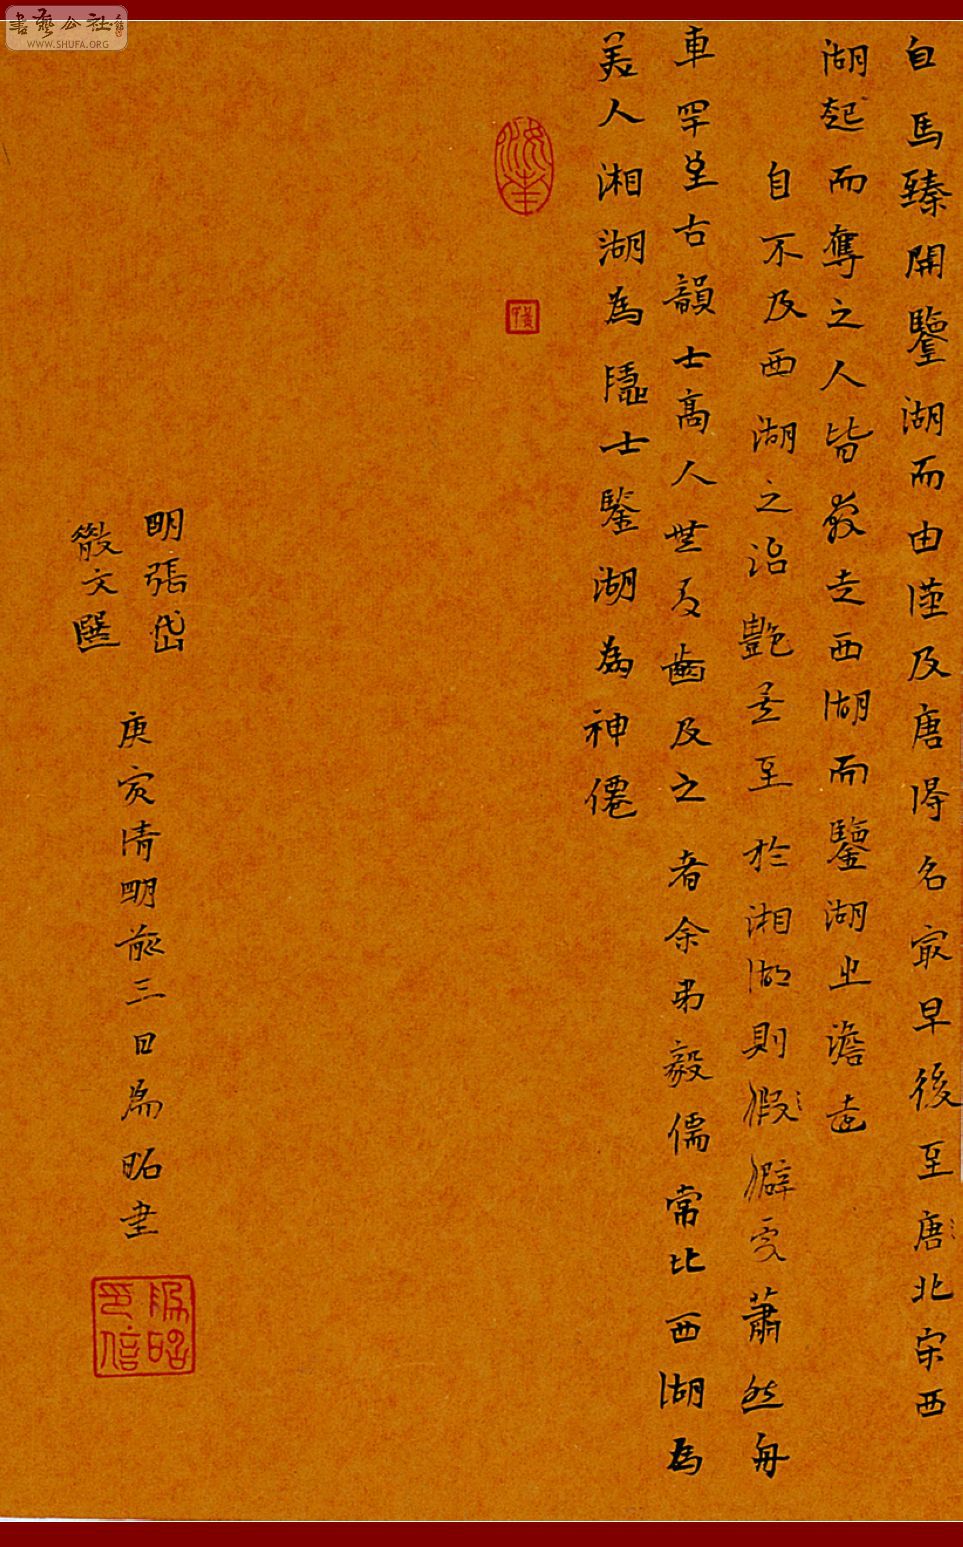 自馬臻開鑒湖而由漢及唐得名最早後至唐北宋西
湖起而奪之人皆舜走西湖而鑒湖之澹遠
自不及西湖之冶艷矣至於湘湖則僻處蕭然舟
車罕至古韻士高人無有齒及之者余弟毅儒常比西湖為
美人湘湖為隱士鑒湖為神僊
明張岱
散文選
庚寅清明前三日為昭書
書藝公社
WWW.SHUFA.ORG